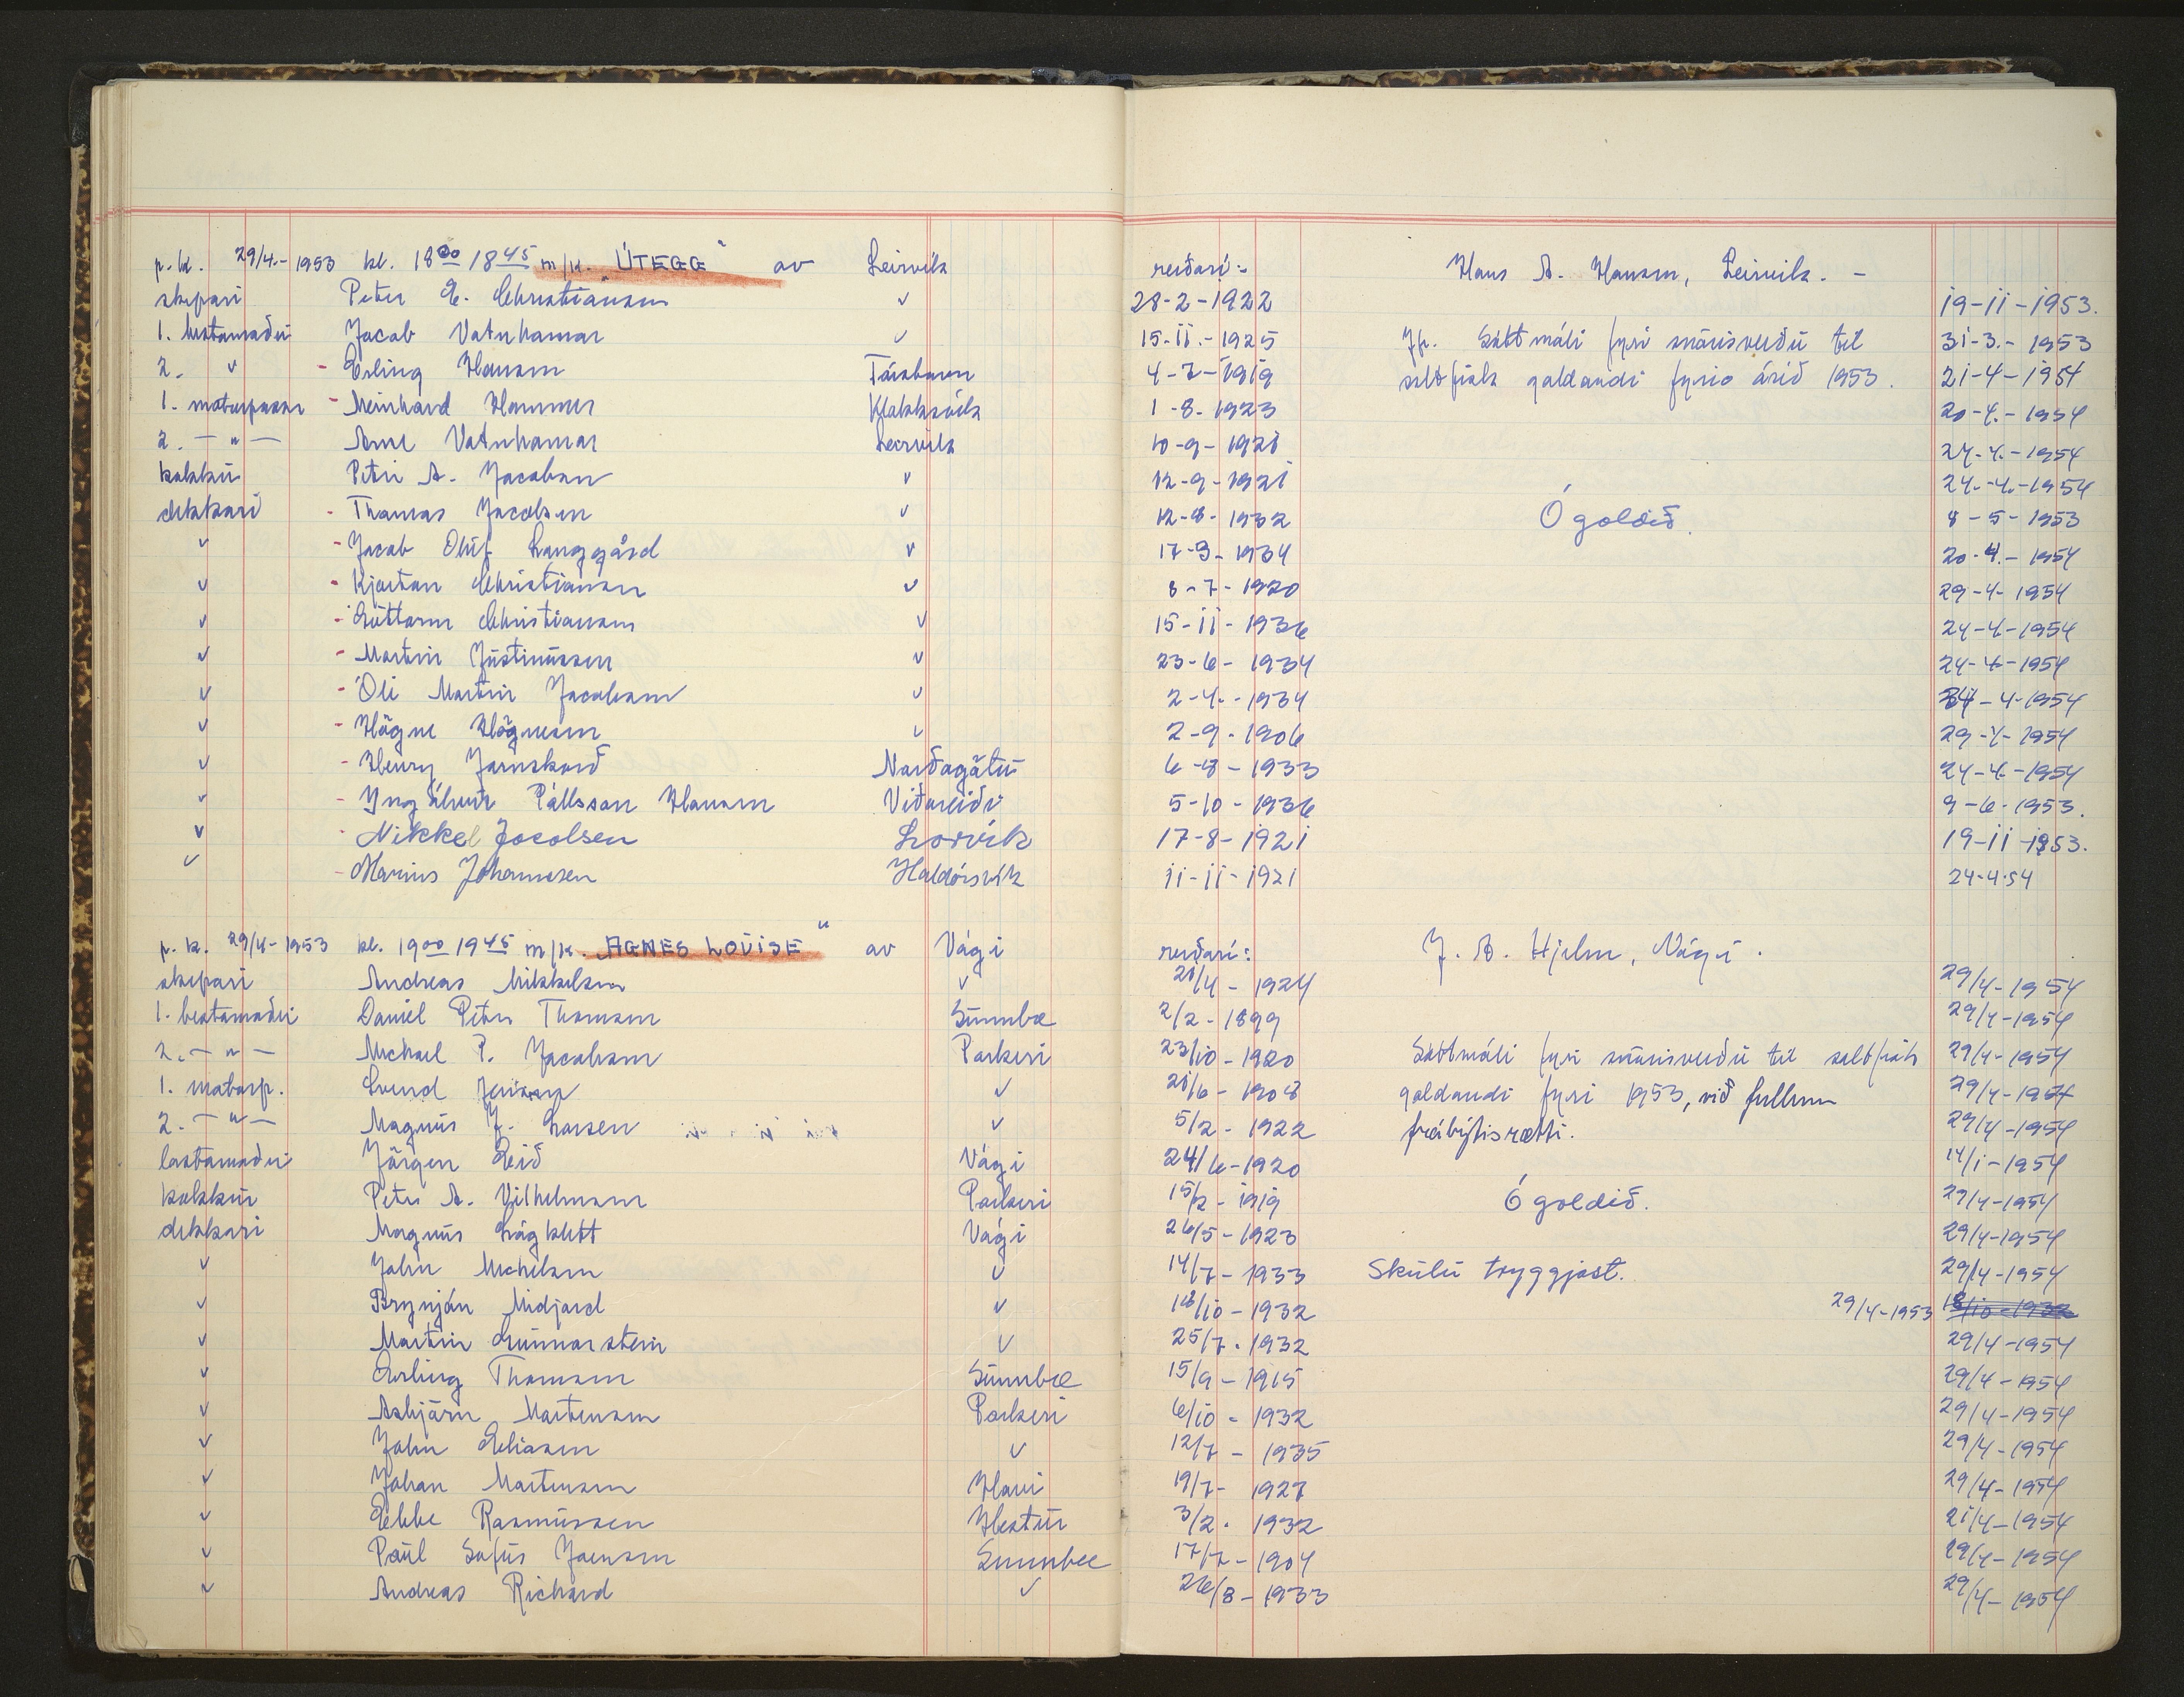 p.k. 29/4.-1953 kl. 18⁰⁰ 18⁴⁵ m/k. „ÚTEGG“ av Leirvík reiðari:- Hans A. Hansen, Leirvík. -
skipari Peter E. Christiansen ✓ 28-2-1922 19-11-1953.
1. bestamaður Jacob Vatnhamar ✓ 15-11.-1925 Jfr. Sáttmáli fyri mánisveiðu til 31-3.-1953
2. ✓ - Erling Hansen Tórshavn 4-7-1919 saltfisk galdandi fyrio árið 1953. 21-4-1954
1. matarpassar - Meinhard Hammer Klakksvík 1-8-1923 20-4.-1954
2. -"- Arne Vatnhamar Leirvík 10-9-1921 24.-4.-1954
kokkur Petur A. Jacobsen ✓ 12-9-1921 24.-4.-1954
dekkari - Thomas Jacobsen ✓ 12-8-1932 Ógoldið. 8-5-1953
✓ - Jacob Oluf Langgård ✓ 17-3-1934 20-4.-1954
✓ - Kjartan Christiansen ✓ 8-7-1920 29-4-1954
✓ - Guttorm Christiansen ✓ 15-11-1936 24-4-1954
✓ - Martin Justinussen ✓ 23-6-1934 24-4-1954
✓ - Óli Martin Jacobsen ✓ 2-4.-1934 24-4-1954
✓ - Högne Högnesen ✓ 2-9-1906 29-4-1954
✓ - Henry Jarnskorð Norðagøtu 6-8-1933 24-4-1954
✓ - Pállsson Hansen Viðareiði 5-10-1936 9-6-1953.
✓ - Nikkel Jacobsen Lorvík 17-8-1921 19-11-1953.
✓ - Marius Johannesen Haldórsvík 11-11-1921 24-4-54
p.k. 29/4-1953 kl. 19⁰⁰ 19⁴⁵ m/k. „AGNES LOUISE“ av Vági reiðari: J. A. Hjelm, Vági.
skipari Andreas Mikkelsen ✓ 1924 29/4-1954
1. bestamaður Daniel Peter Thomsen Sumbæ 2/2-1899 29/4-1954
2. -"- Michael P. Jacobsen Porkeri 23/10-1920 Sáttmáli fyri mánisveiðu til saltfisk 29/4-1954
1. matarp. Svend ✓ 1908 galdandi fyri 1953, við fullum 29/4-1954
2. -"- Magnus J. Larsen ✓ 5/2-1922 frábýtisrætti. 29/4-1954
lastamaður Jörgen Eið Vági 24/6-1920 14/1-1954
kokkur Peter A. Vilhelmsen Porkeri 15/2-1919 Ógoldið. 29/4-1954
dekkari Magnus Lágklett Vági 26/5-1923 29/4-1954
✓ John Michelsen ✓ 14/7-1933 Skulu tryggjast. 29/4-1954
✓ Brynján Midjord ✓ 18/10-1932 29/4-1953 18/10-1932
✓ Martin Gunnarstein ✓ 25/7-1932 29/4-1954
✓ Erling Thomsen Sumbæ 15/9-1915 29/4-1954
✓ Asbjørn Mortensen Porkeri 6/10-1932 29/4-1954
✓ John Eliasen ✓ 12/7-1935 29/4-1954
✓ Johan Mortensen Hovi 19/7-1927 29/4-1954
✓ Ebbe Rasmussen Hestur 3/2-1932 21/4-1954
✓ Paul Sofus Joensen Sumbæ 17/7-1904 29/4-1954
✓ Andreas Richard ✓ 26/8-1933 29/4-1954